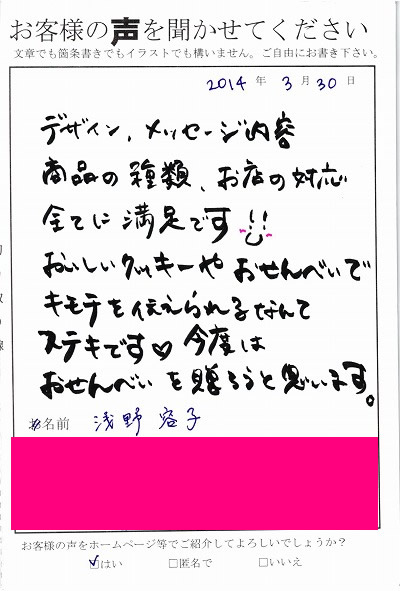 お客様の声を聞かせてください
文章でも箇条書きでもイラストでも構いません。ご自由にお書き下さい。
2014年 3月30日
デザイン、メッセージ内容
商品の種類、お店の対応
全てに満足です
おいしいクッキーや おせんべいで
キモチを伝えられるなんて
ステキです♡ 今度は
おせんべい を贈ろうと思います。
お名前 浅野 容子
お客様の声をホームページ等でご紹介してよろしいでしょうか?
☑はい □匿名で □いいえ